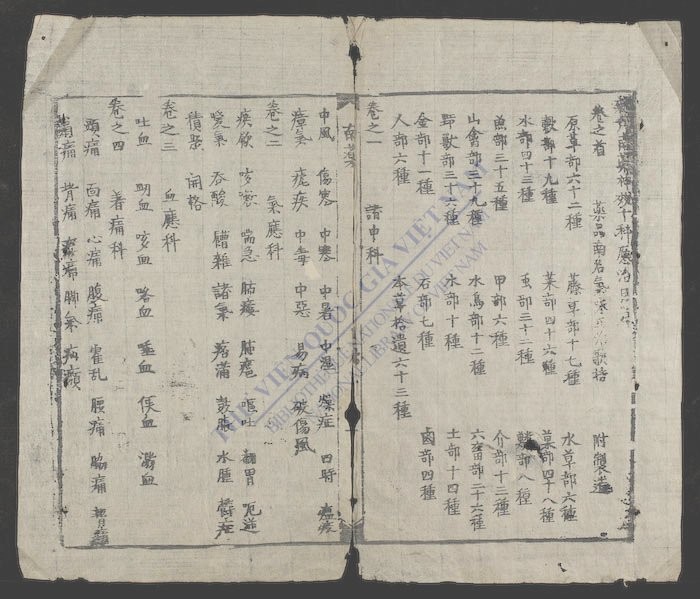 新刊南藥神效十科應治
卷之首 藥品南名氣味 附製造
原草部六十二種 藤草部十七種 水草部六種
穀部十九種 菜部四十六種 菓部四十八種
水部四十三種 虫部三十二種 部八種
魚部三十五種 甲部六種 介部十三種
山禽部三十九種 水鳥部十二種 六畜部二十六種
野獸部三十六種 水部十種 土部十四種
金部十一種 石部七種 鹵部四種
人部六種 本草拾遺六十三種
卷之一 諸中科
南藥
中風 傷寒 中寒 中暑 中濕 燥症 四時 瘟疫
瘴氣 瘧疾 中毒 中惡 易病 破傷風
卷之二 氣應科
痰飲 咳嗽 喘急 肺痿 肺癰 嘔吐 翻胃 呃逆
噯氣 吞酸 嘈雜 諸氣 痞滿 鼓脹 水腫 鬱症
積聚 關格
卷之三 血應科
吐血 衄血 咳血 咯血 唾血 溺血
卷之四 著痛科
頭痛 面痛 心痛 腹痛 霍乱 腰痛 脇痛
肩痛 背痛 脚氣
THƯ VIỆN QUỐC GIA VIỆT NAM
BIBLIOTHÈQUE NATIONALE DU VIETNAM
NATIONAL LIBRARY OF VIETNAM